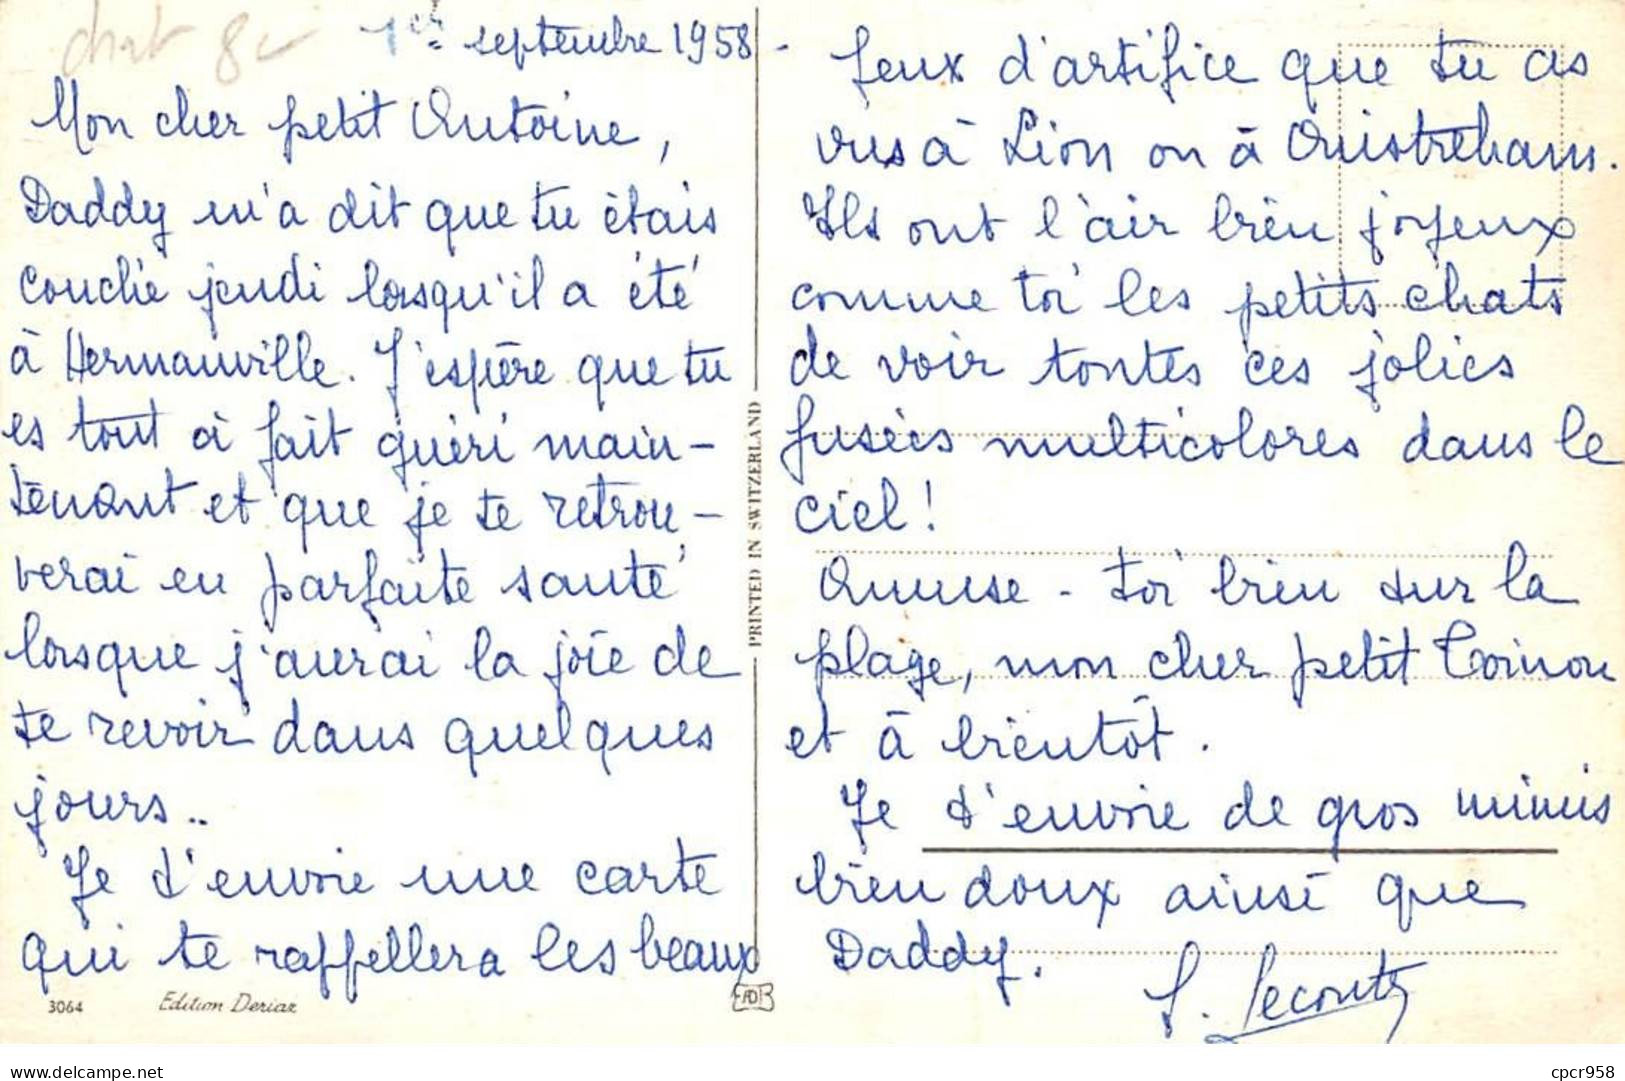 chat 8
1er septembre 1958 -
Mon cher petit Antoine,
Daddy m'a dit que tu étais
couché jeudi lorsqu'il a été
à Hermanville. J'espère que tu
es tout à fait guéri main-
tenant et que je te retrou-
verai en parfaite santé
lorsque j'aurai la joie de
te revoir dans quelques
jours..
Je t'envoie une carte
qui te rappellera les beaux
3064 Edition Deriaz
PRINTED IN SWITZERLAND
feux d'artifice que tu as
vus à Lion ou à Ouistreham.
Ils ont l'air bien joyeux
comme toi les petits chats
de voir toutes ces jolies
fusées multicolores dans le
ciel !
Amuse-toi bien sur la
plage, mon cher petit Toinou
et à bientôt.
Je t'envoie de gros mimis
bien doux ainsi que
Daddy.
cpcr958
www.delcampe.net